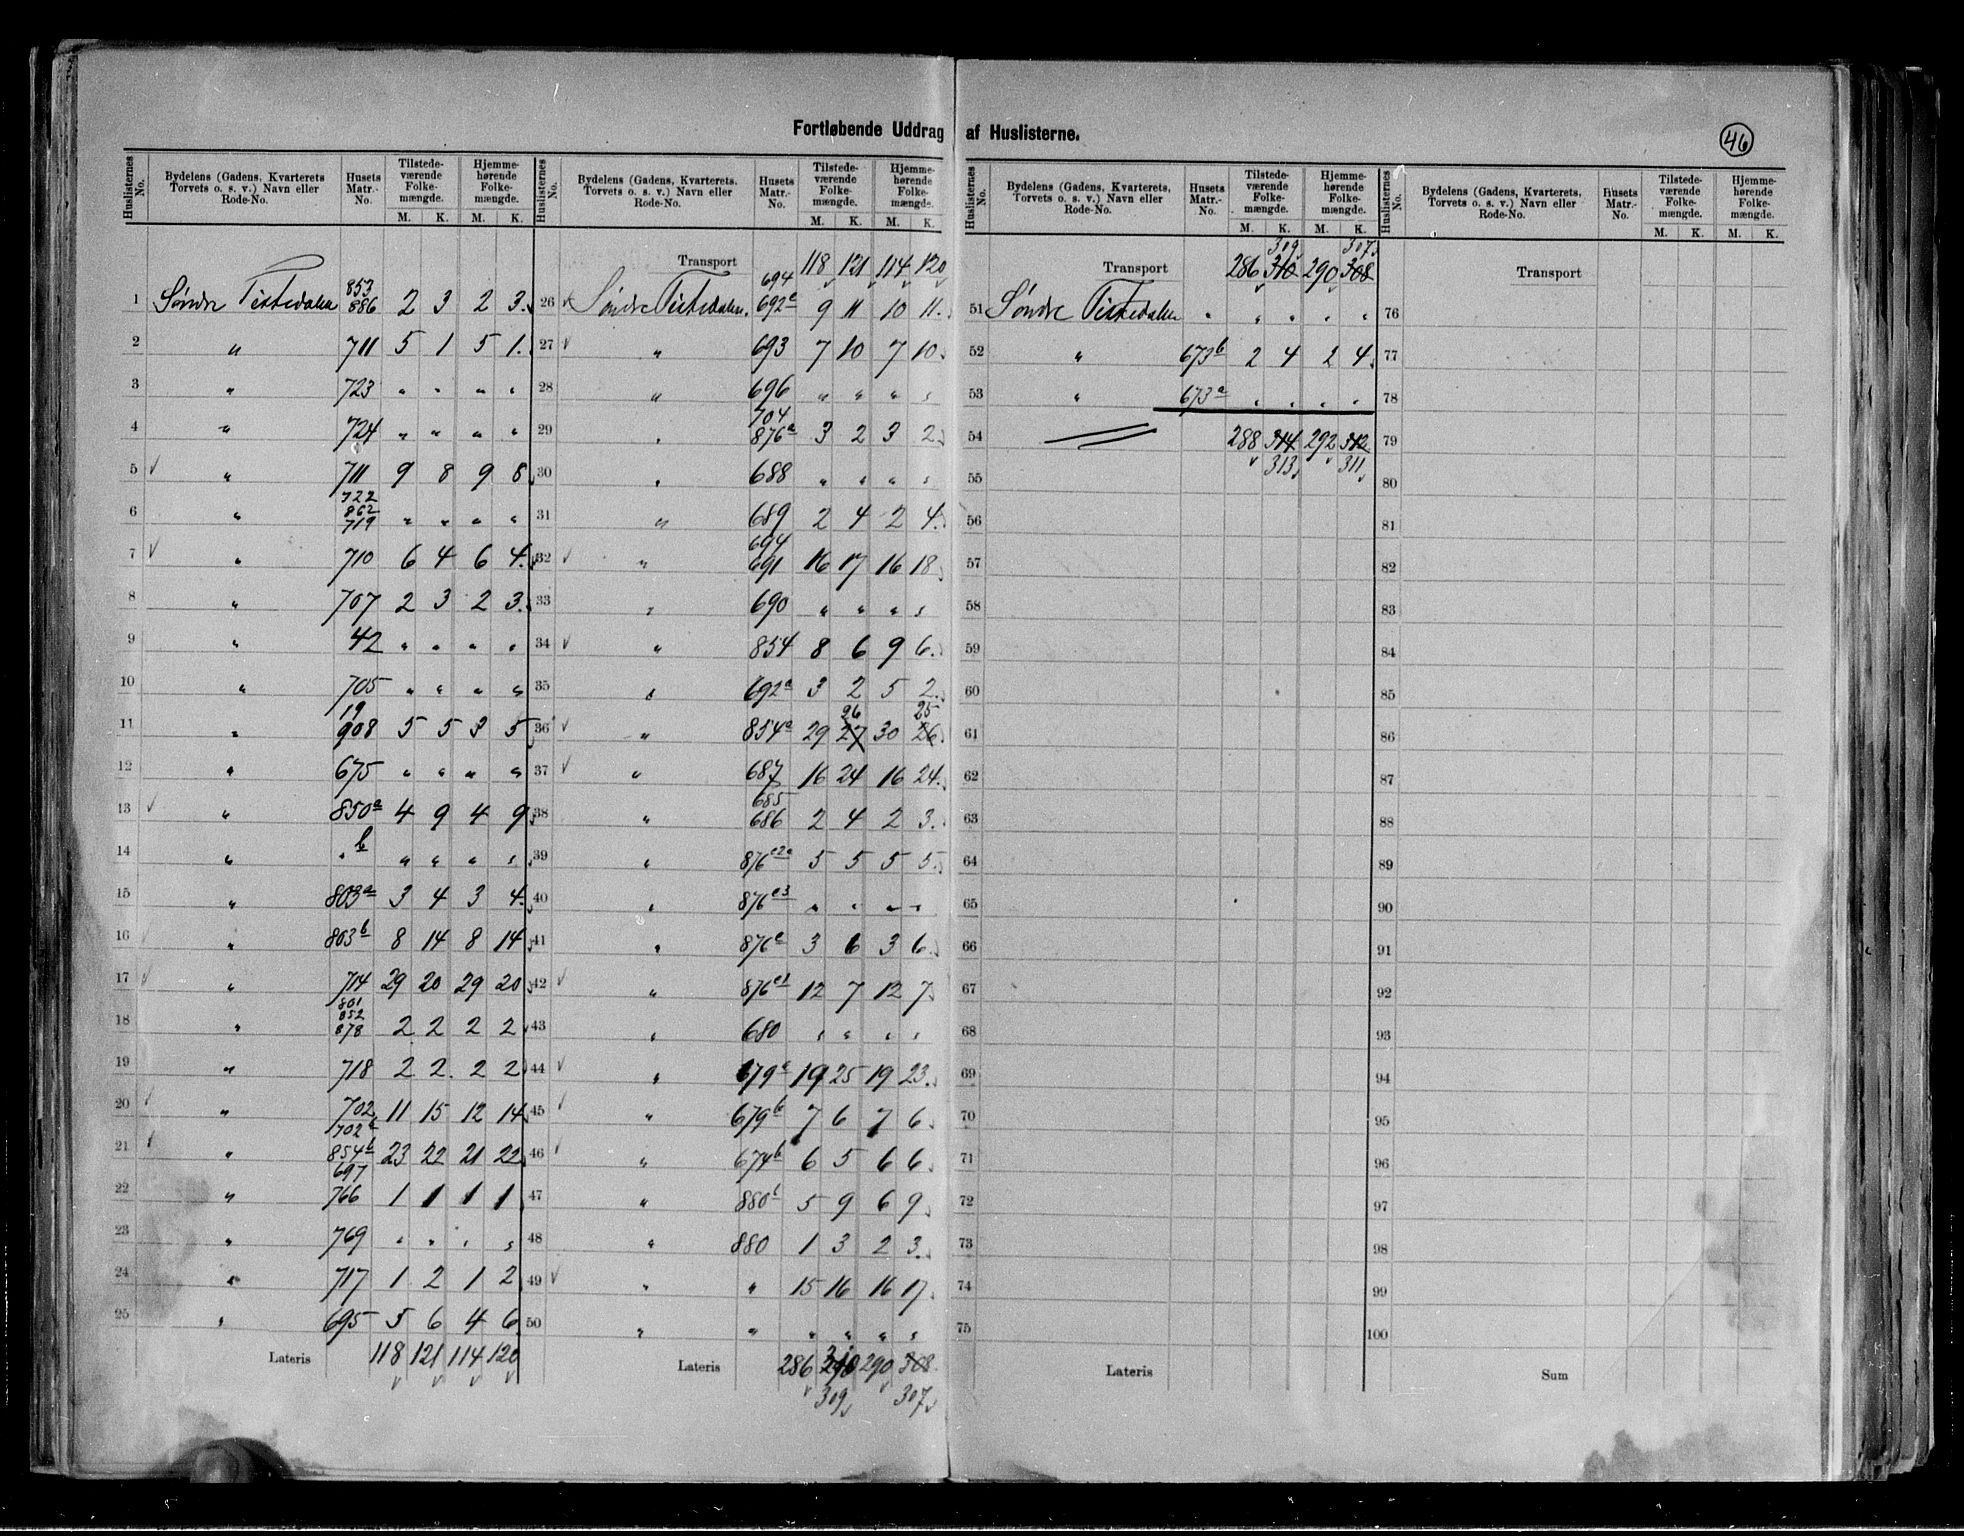 Fortløbende Uddrag af Huslisterne.
46
Huslisternes No. | Bydelens (Gadens, Kvarterets Torvets o. s. v.) Navn eller Rode-No. | Husets Matr.-No. | Tilstede-værende Folke-mængde. M. K. | Hjemme-hørende Folke-mængde. M. K.
1 Søndre Tistedalen 853 886 2 3 2 3.
2 " 711 5 1 5 1.
3 " 723 " " " "
4 " 724 " " " "
5 " 711 9 8 9 8
6 " 722 862 719 " " " "
7 " 710 6 4 6 4.
8 " 707 2 3 2 3.
9 " 42 " " " "
10 " 705 " " " "
11 " 19 908 5 5 3 5
12 " 675 " " " "
13 " 850a 4 9 4 9
14 " " b " " " "
15 " 803a 3 4 3 4.
16 " 803b 8 14 8 14
17 " 714 29 20 29 20
18 " 801 852 878 2 2 2 2
19 " 718 2 2. 2 2
20 " 702 702b 11 15 12 14
21 " 854b 697 23 22 21 22
22 " 766 1 1 1 1
23 " 769 " " " "
24 " 717 1 2 1 2
25 " 695 5 6 4 6
Lateris 118 121 114 120
Huslisternes No. | Bydelens (Gadens, Kvarterets, Torvets o. s. v.) Navn eller Rode-No. | Husets Matr.-No. | Tilstede-værende Folke-mængde. M. K. | Hjemme-hørende Folke-mængde. M. K.
Transport 118 121 114 120
26 Søndre Tistedalen. 694 692c 9 11 10 11.
27 " 693 7 10 7 10
28 " 696 " " " "
29 " 704 876a 3 2 3 2
30 " 688 " " " "
31 " 689 2 4 2 4.
32 " 694 691 16 17 16 18
33 " 690 " " " "
34 " 854 8 6 9 6.
35 " 692a 3 2 5 2.
36 " 854a 29 27 26 30 26 25
37 " 687 16 24 16 24.
38 " 685 686 2 4 2 3.
39 " 876 5 5 5 5.
40 " 876c3 " " " "
41 " 876 3 6 3 6
42 " 876 12 7 12 7
43 " 680 " " " "
44 " 679a 19 25 19 23.
45 " 679b 7 6 7 6.
46 " 674b 6 5 6 6.
47 " 880b 5 9 6 9
48 " 880 1 3 2 3.
49 " " 15 16 16 17
50 " " " " " "
Lateris 286 310 290 308
309 307
Huslisternes No. | Bydelens (Gadens, Kvarterets, Torvets o. s. v.) Navn eller Rode-No. | Husets Matr.-No. | Tilstede-værende Folke-mængde. M. K. | Hjemme-hørende Folke-mængde. M. K.
309 307
Transport 286 310 290 308
51 Søndre Tistedalen " " " " "
52 " 673b 2 4 2 4.
53 " 673a " " " "
54 288 314 292 312
55 313 311
56
57
58
59
60
61
62
63
64
65
66
67
68
69
70
71
72
73
74
75
Lateris
Huslisternes No. | Bydelens (Gadens, Kvarterets, Torvets o. s. v.) Navn eller Rode-No. | Husets Matr.-No. | Tilstede-værende Folke-mængde. M. K. | Hjemme-hørende Folke-mængde. M. K.
Transport
76
77
78
79
80
81
82
83
84
85
86
87
88
89
90
91
92
93
94
95
96
97
98
99
100
Sum